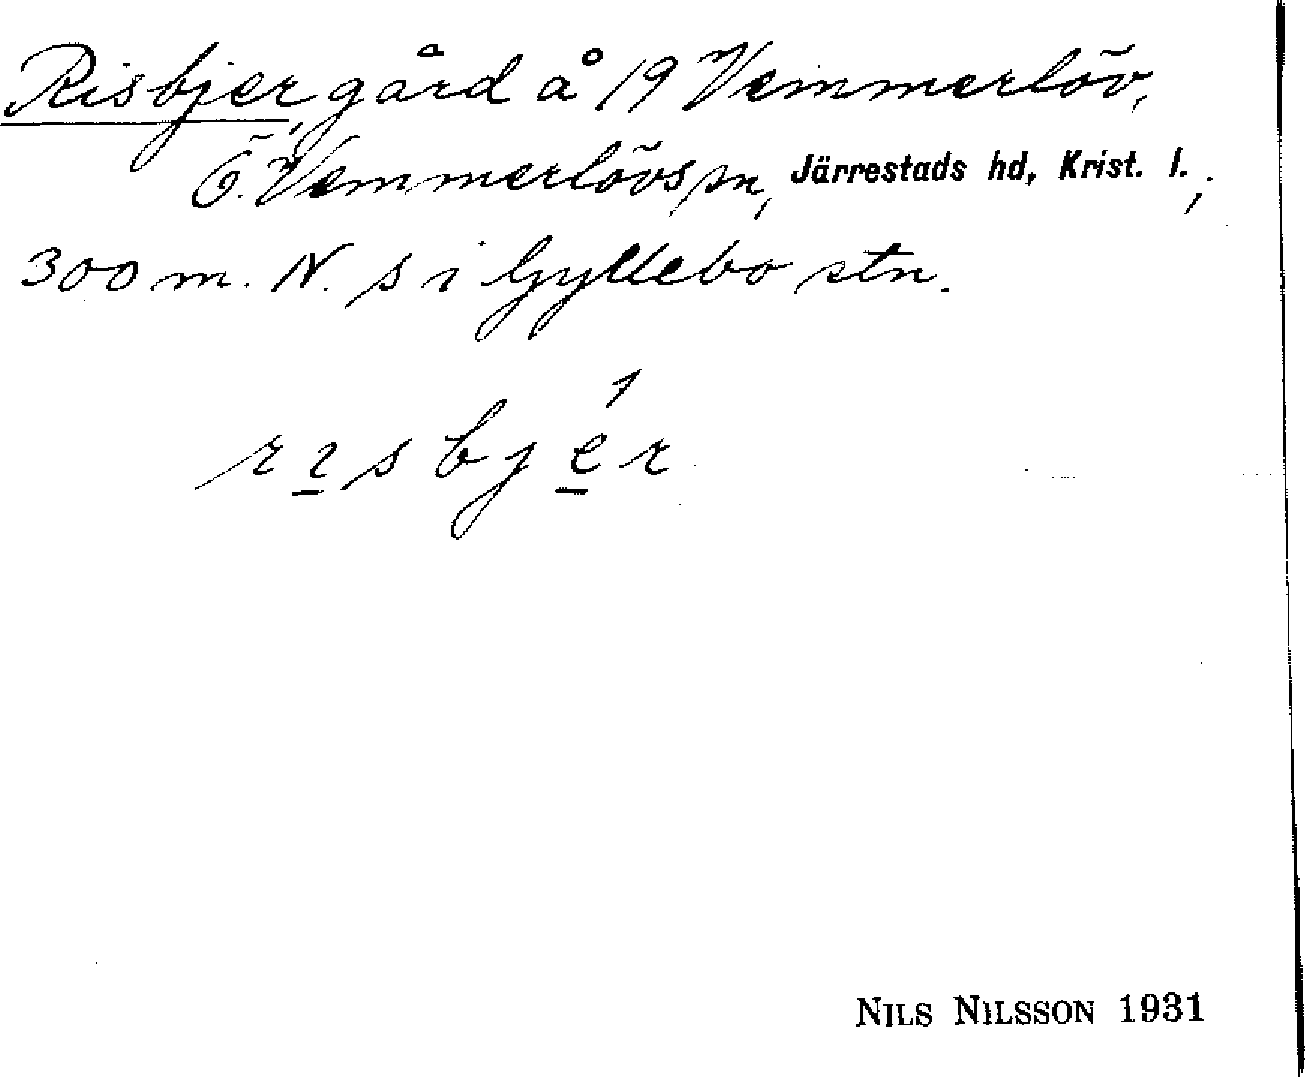 Risbjer, gård å 19 Vemmerlöv,
Ö. Vemmerlövs sn, Järrestads hd, Krist. l.,
300 m. N. s i Gyllebo stn.
risbjér
NILS NILSSON 1931